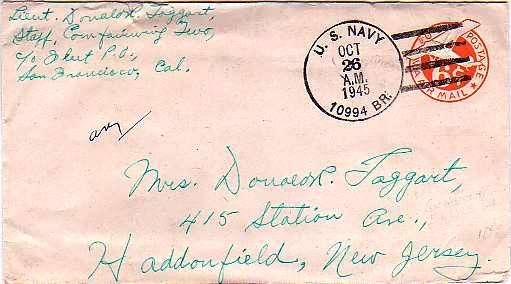 Lieut. Donald R. Taggart,
Staff, ComFairWing Two,
c/o Fleet P.O.,
San Francisco, Cal.
U. S. NAVY
OCT
26
A.M.
1945
10994 BR.
POSTAGE
6¢
AIR MAIL
Mrs. Donald R. Taggart,
415 Station Ave.,
Haddonfield, New Jersey.